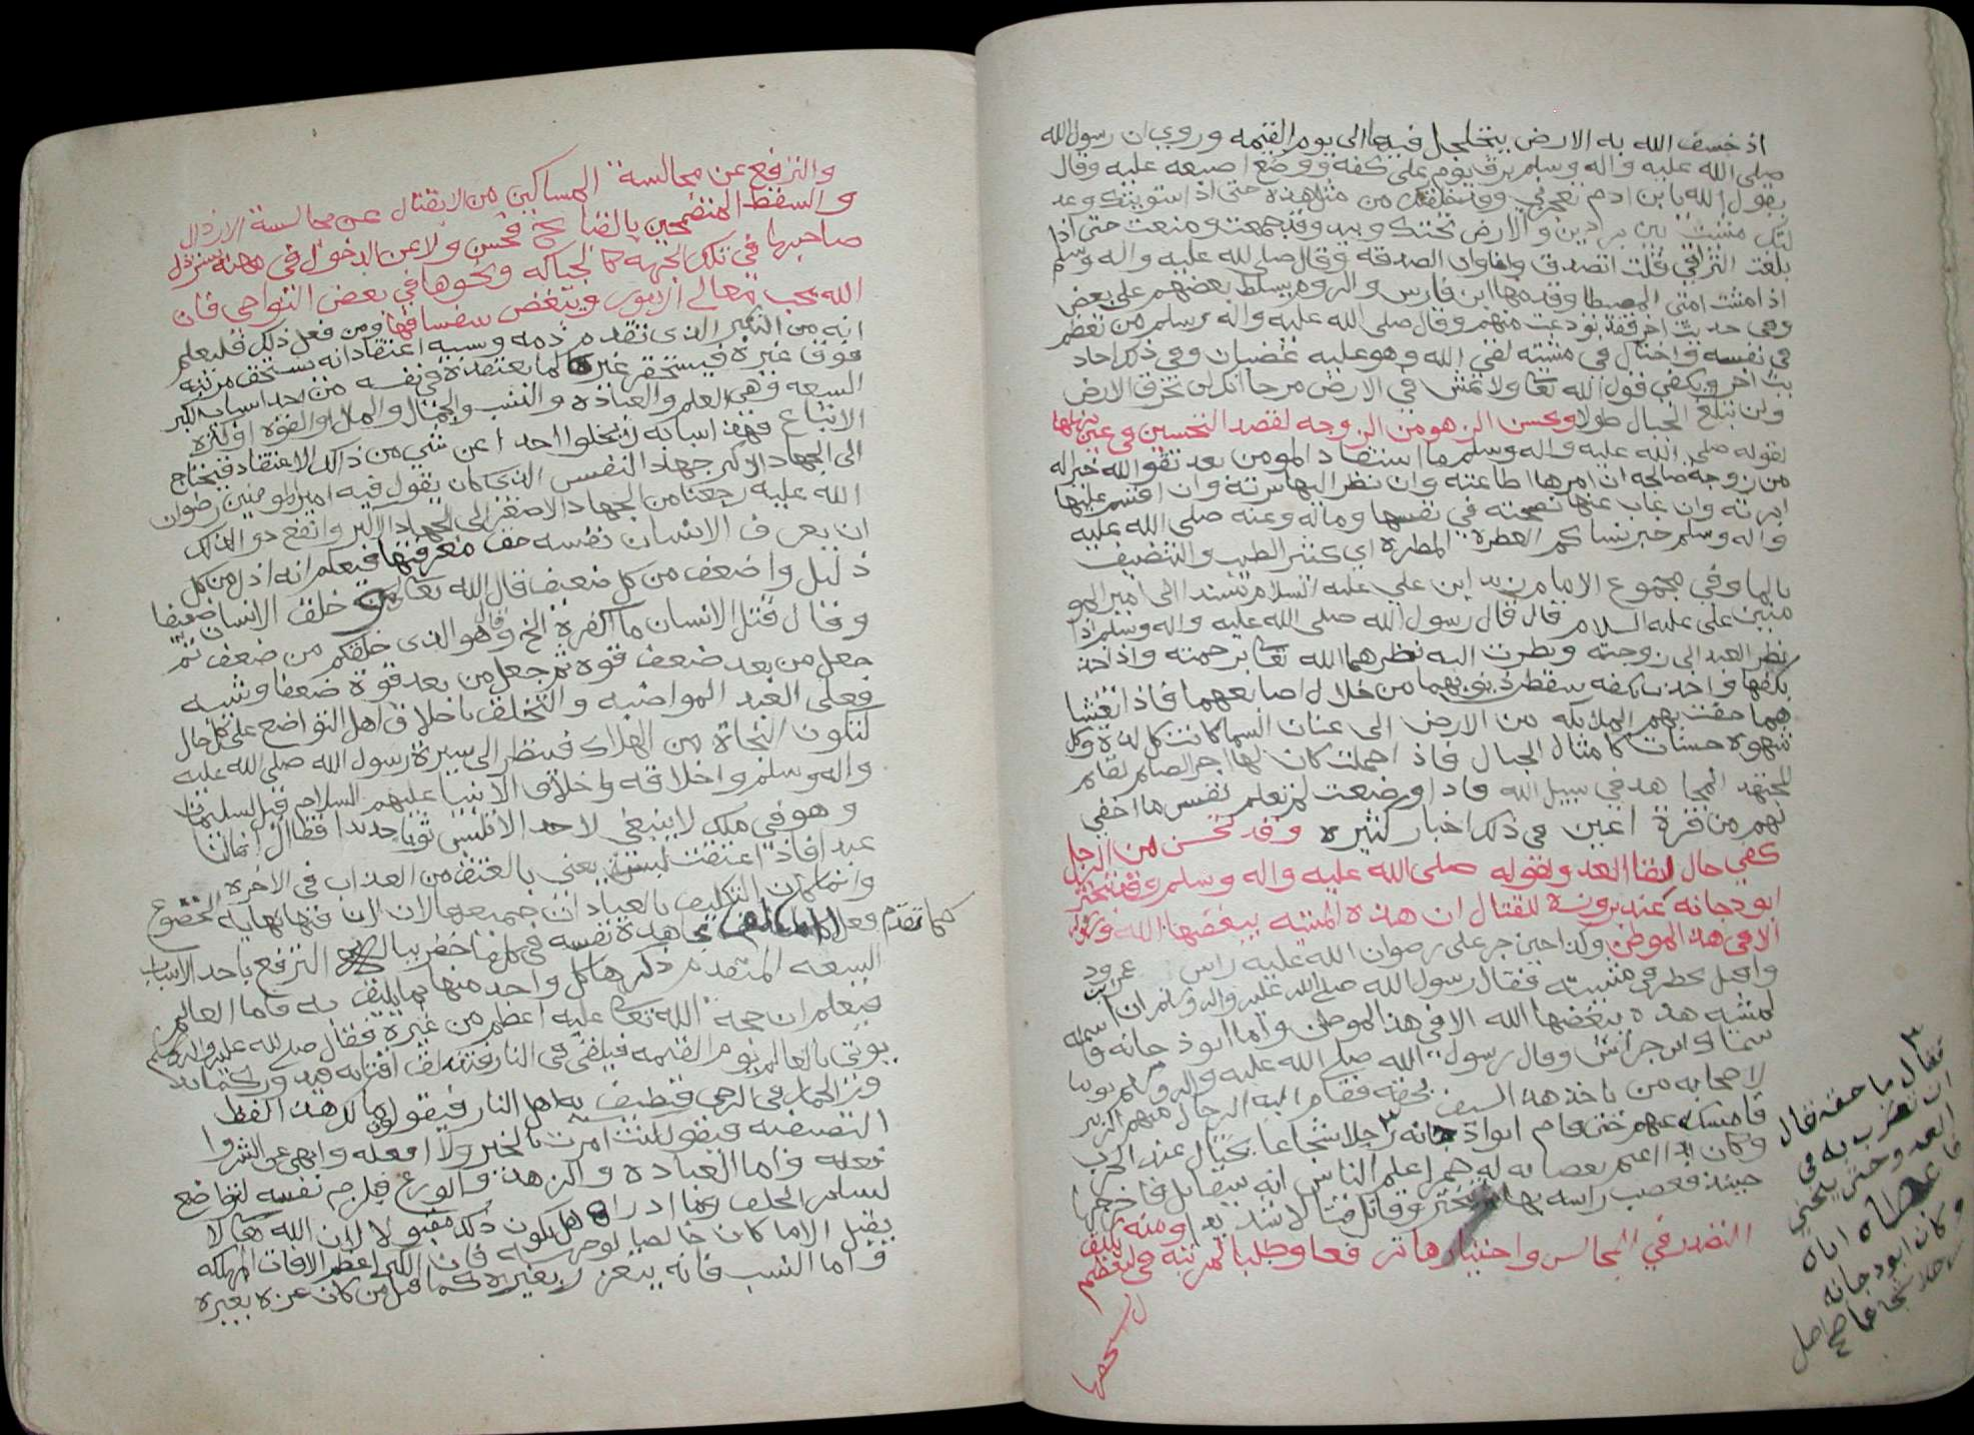 اذ خسف الله به الارض يتخلجل فيها الى يوم القيمه وروي ان رسول الله
صلى الله عليه واله وسلم بزق يوم على كفه ووضع اصبعه عليه وقال
يقول الله يا بن ادم تعجزني وقد خلقتك من مثل هذه حتى اذا سويتك وعد
لتك مشيت بين بردين والارض تحتك وبيد وقد جمعت ومنعت حتى اذا
بلغت التراقي قلت اتصدق وانى اوان الصدقه وقال صلى الله عليه واله وسلم
اذا مشت امتي المصيطا وخدمها ابن فارس والروم يسلط بعضهم على بعض
وفي حديث اخر فقد تودعت منهم وقال صلى الله عليه واله وسلم من تعظم
في نفسه واختال في مشيته لقي الله وهو عليه غضبان وفي ذلك احاد
يث اخر ويكفي قول الله تعا ولا تمش في الارض مرحا انك لن تخرق الارض
ولن تبلغ الجبال طولا ويحسن الزهو من الزوجه لقصد التحسين في عين بعلها
لقوله صلى الله عليه واله وسلم ما استفاد المومن بعد تقوى الله خير اله
من زوجة صالحه ان امرها اطاعته وان نظر اليها سرته وان اقسم عليها
ابرته وان غاب عنها نصحته في نفسها وماله وعنه صلى الله عليه
واله وسلم خير نسايكم العطرة المطرة اي كثير الطيب والتنضيف
بالما وفي مجموع الامام زيد ابن علي عليه السلام مسندا الى امير المو
منين على عليه السلام قال قال رسول الله صلى الله عليه واله وسلم اذا
نظر العبد الى زوجته ونظرت اليه نظرهما الله تعا برحمته واذا اخذ
بكفها واخذت بكفه سقطت ذنوبهما من خلال اصابعهما فاذا تغشا
هما حفت بهم الملايكه من الارض الى عنان السما كانت كل لذة وكل
شهوه حسنات كامثال الجبال فاذ احملت كان لها اجر الصايم القايم
المجتهد المجاهد في سبيل الله فاذا وضعت لم تعلم نفس ما اخفي
لهم من قرة اعين في ذلك اخبار كثيره وقد تحسن من الرجل
كفي حال لقا العدو لقوله صلى الله عليه واله وسلم وقد تبختر
ابو دجانه عند بروزه للقتال ان هذه المشيه يبغضها الله ورسوله
الا في هذا الموطن وكذا حين جز على رضوان الله عليه راس عمرود
واقبل يخطر في مشيته فقال رسول الله صلى الله عليه واله وسلم ان
لمشيه هذه يبغضها الله الا في هذا الموطن واما ابو ذ جانه فاسمه
سماك ابن خراش وقال رسول الله صلى الله عليه واله وسلم يوما
لاصحابه من ياخذ هذا السيف بحقه فقام اليه الرجال منهم الزبير
فامسكه عنهم حتى قام ابو اذ جانه رجلا شجاعا يختال عند الحرب
وكان اذا اعتم بعصابه له حمرا علم الناس انه سيقاتل فاخرجها
حينئذ فعصب راسه بها وتبختر وقاتل قتالا شديدا ومنه تكليف
التصدر في المجالس واختيارها ترفعا وطلبا لمرتبة في تعظيم
فقال ما حقه قال
ان تضرب به في
العدو حتى ينحني
فاعطاه اياه
وكان ابو دجانه
رجلا شجاعا صح اصل
والترفع عن مجالسة المساكين من لا يقتال عن مجالسة الارذال
والسقط المتضمخين بالفضايح فحسن ولا عن الدخول في مهنه يسترذل
صاحبها في تلك الجهه كالحياكه ونحوها في بعض النواحي فان
الله يحب معالي الامور ويبغض سفسافها ومن فعل ذلك فليعلم
انه من التكبر الذي تقدم ذمه وسببه اعتقاد انه يستحق مرتبه
فوق غيره فيستحقر غيره لما يعتقده في نفسه من احد اسباب الكبر
السبعه وهي العلم والعباده والنسب والجمال والمال والقوه او كثرة
الاتباع فهذه اسبابه لا يخلوا احد عن شي من ذلك الاعتقاد فيحتاج
الى الجهاد الاكبر جهاد النفس الذي كان يقول فيه امير المومنين رضوان
الله عليه رجعنا من الجهاد الاصغر الى الجهاد الاكبر وانفع دوا لذلك
ان يعرف الانسان نفسه حق معرفتها فيعلم انه اذل من كل
ذليل واضعف من كل ضعيف قال الله تعا خلق الانسان ضعيفا
وقال قتل الانسان ما اكفره الخ وقال هو الذي خلقكم من ضعف ثم
جعل من بعد ضعف قوه ثم جعل من بعد قوة ضعفا وشيبه
فعلى العبد المواضبه والتخلق باخلاق اهل التواضع على كل حال
لتكون النجاة من الهلاك فينظر الى سيرة رسول الله صلى الله عليه
واله وسلم واخلاقه واخلاق الانبيا عليهم السلام قيل لسليمان
وهو في ملك لا ينبغي لاحد الا تلبس ثوبا جديدا فقال انما انا
عبد فاذا اعتقت لبست يعني بالعتق من العذاب في الاخره
وانما كان التكليف بالعبادات جميعها لان فيها نهاية الخضوع
كما تقدم فعلى مجاهدة نفسه في كل ما خطر بباله الترفع باحد الاسباب
السبعه المتقدم ذكرها كل واحد منها بما يليق به فاما العالم
فيعلم ان حجة الله تعا عليه اعظم من غيره فقال صلى الله عليه واله وسلم
يوتى بالعالم يوم القيمه فيلقى في النار فتندلق اقتابه فيدور كما يد
ور الحمار في الرحى فيطيف به اهل النار فيقولون ما لك هذا لفظ
التصفيه فيقول كنت امرت بالخير ولا افعله وانهى عن الشر وا
فعله واما العباده والزهد والورع فيلزم نفسه التواضع
لساير الخلق وما ادراه هل يكون ذلك مقبولا لان الله تعا لا
يقبل الا ما كان خالصا لوجهه فان الكبر اعظم الافات المهلكه
واما النسب فانه يتعزز بغيره كما قيل من كان عزه بغيره